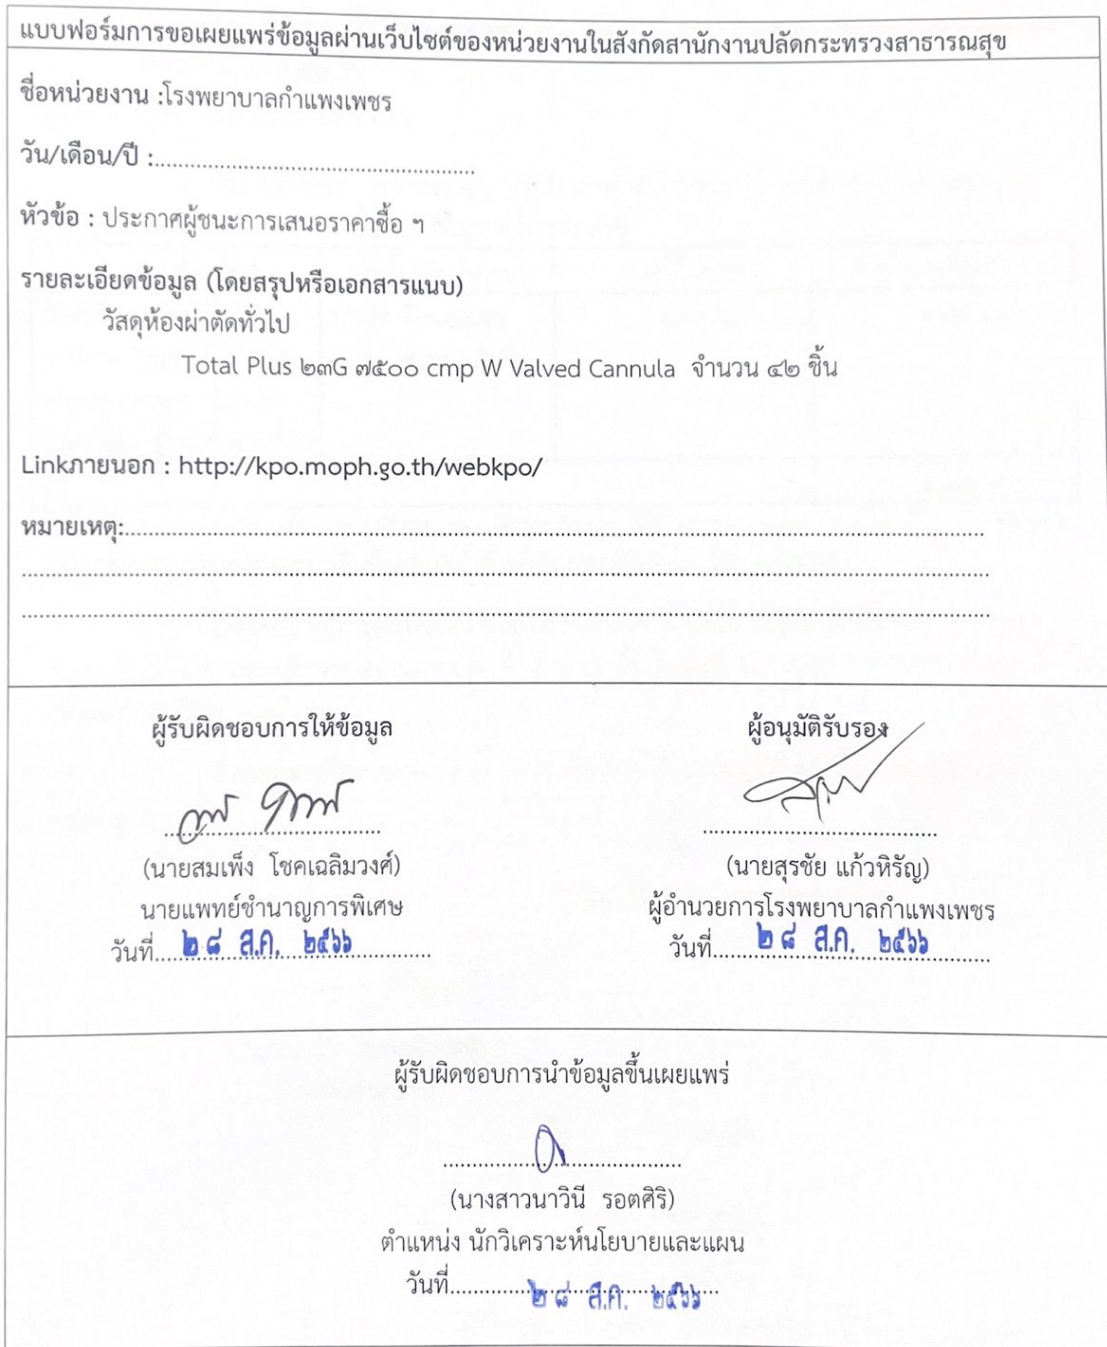 แบบฟอร์มการขอเผยแพร่ข้อมูลผ่านเว็บไซต์ของหน่วยงานในสังกัดสานักงานปลัดกระทรวงสาธารณสุข
ชื่อหน่วยงาน :โรงพยาบาลกำแพงเพชร
วัน/เดือน/ปี :......................................................
หัวข้อ : ประกาศผู้ชนะการเสนอราคาซื้อ ฯ
รายละเอียดข้อมูล (โดยสรุปหรือเอกสารแนบ)
วัสดุห้องผ่าตัดทั่วไป
Total Plus ๒๓G ๗๕๐๐ cmp W Valved Cannula จำนวน ๔๒ ชิ้น
Linkภายนอก : http://kpo.moph.go.th/webkpo/
หมายเหตุ:..........................................................................................................................
..........................................................................................................................
..........................................................................................................................
ผู้รับผิดชอบการให้ข้อมูล
(นายสมเพ็ง โชคเฉลิมวงศ์)
นายแพทย์ชำนาญการพิเศษ
วันที่ ๒๘ ส.ค. ๒๕๖๖
ผู้อนุมัติรับรอง
(นายสุรชัย แก้วหิรัญ)
ผู้อำนวยการโรงพยาบาลกำแพงเพชร
วันที่ ๒๘ ส.ค. ๒๕๖๖
ผู้รับผิดชอบการนำข้อมูลขึ้นเผยแพร่
(นางสาวนาวินี รอตศิริ)
ตำแหน่ง นักวิเคราะห์นโยบายและแผน
วันที่ ๒๘ ส.ค. ๒๕๖๖